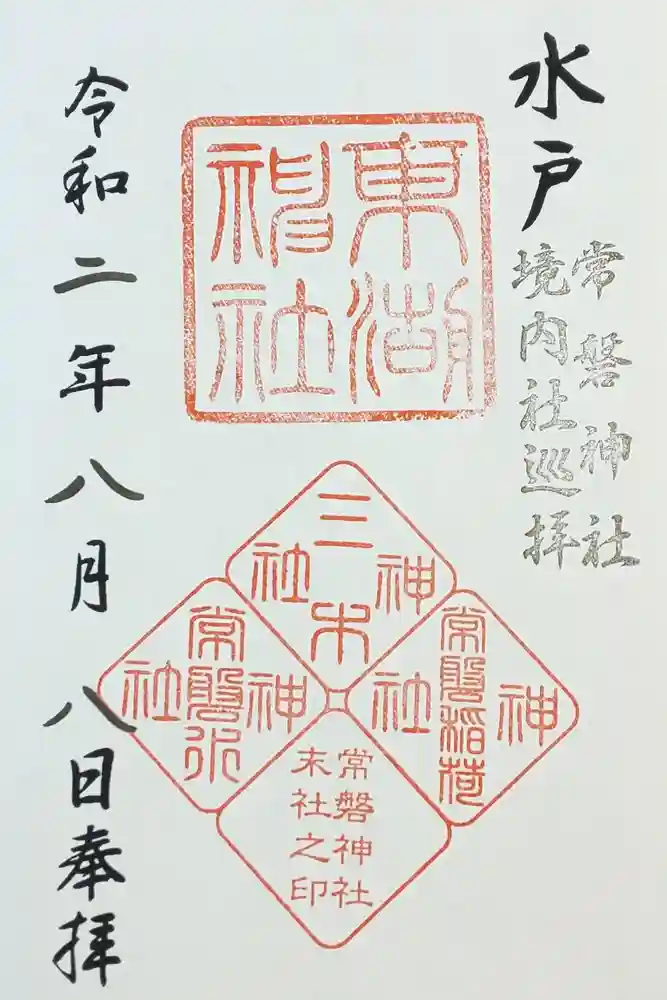 水戸
常磐神社
境内社巡拝
東湖
神社
三木神社
常磐稲荷神社
常磐水神社
常磐神社
末社之印
令和二年八月八日奉拝